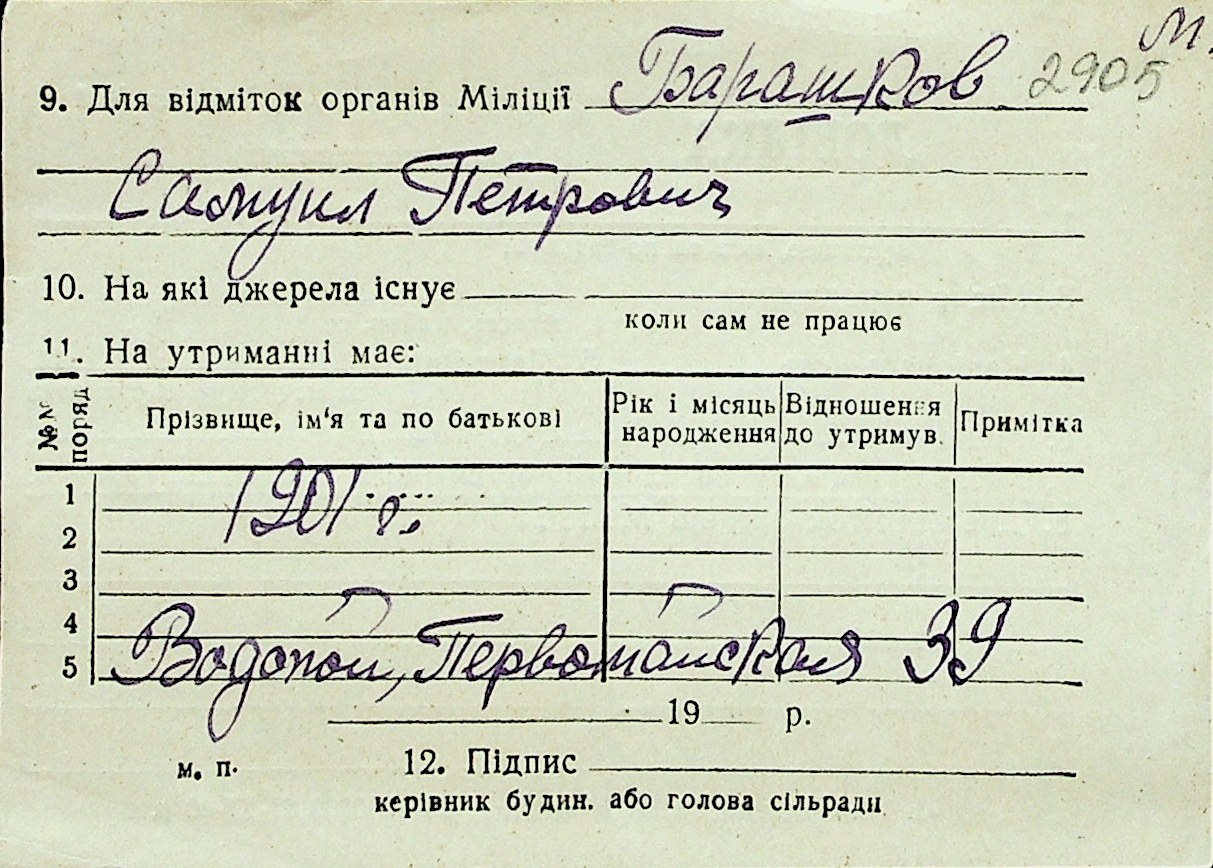 М.
9. Для відміток органів Міліції Барашков 2905
Самуил Петрович
10. На які джерела існує
коли сам не працює
11. На утриманні має:
№№ поряд Прізвище, ім'я та по батькові Рік і місяць народження Відношення до утримув. Примітка
1 1901 г.
2
3
4
5 Водопой, Первомайская 39
19 р.
м. п. 12. Підпис
керівник будин. або голова сільради